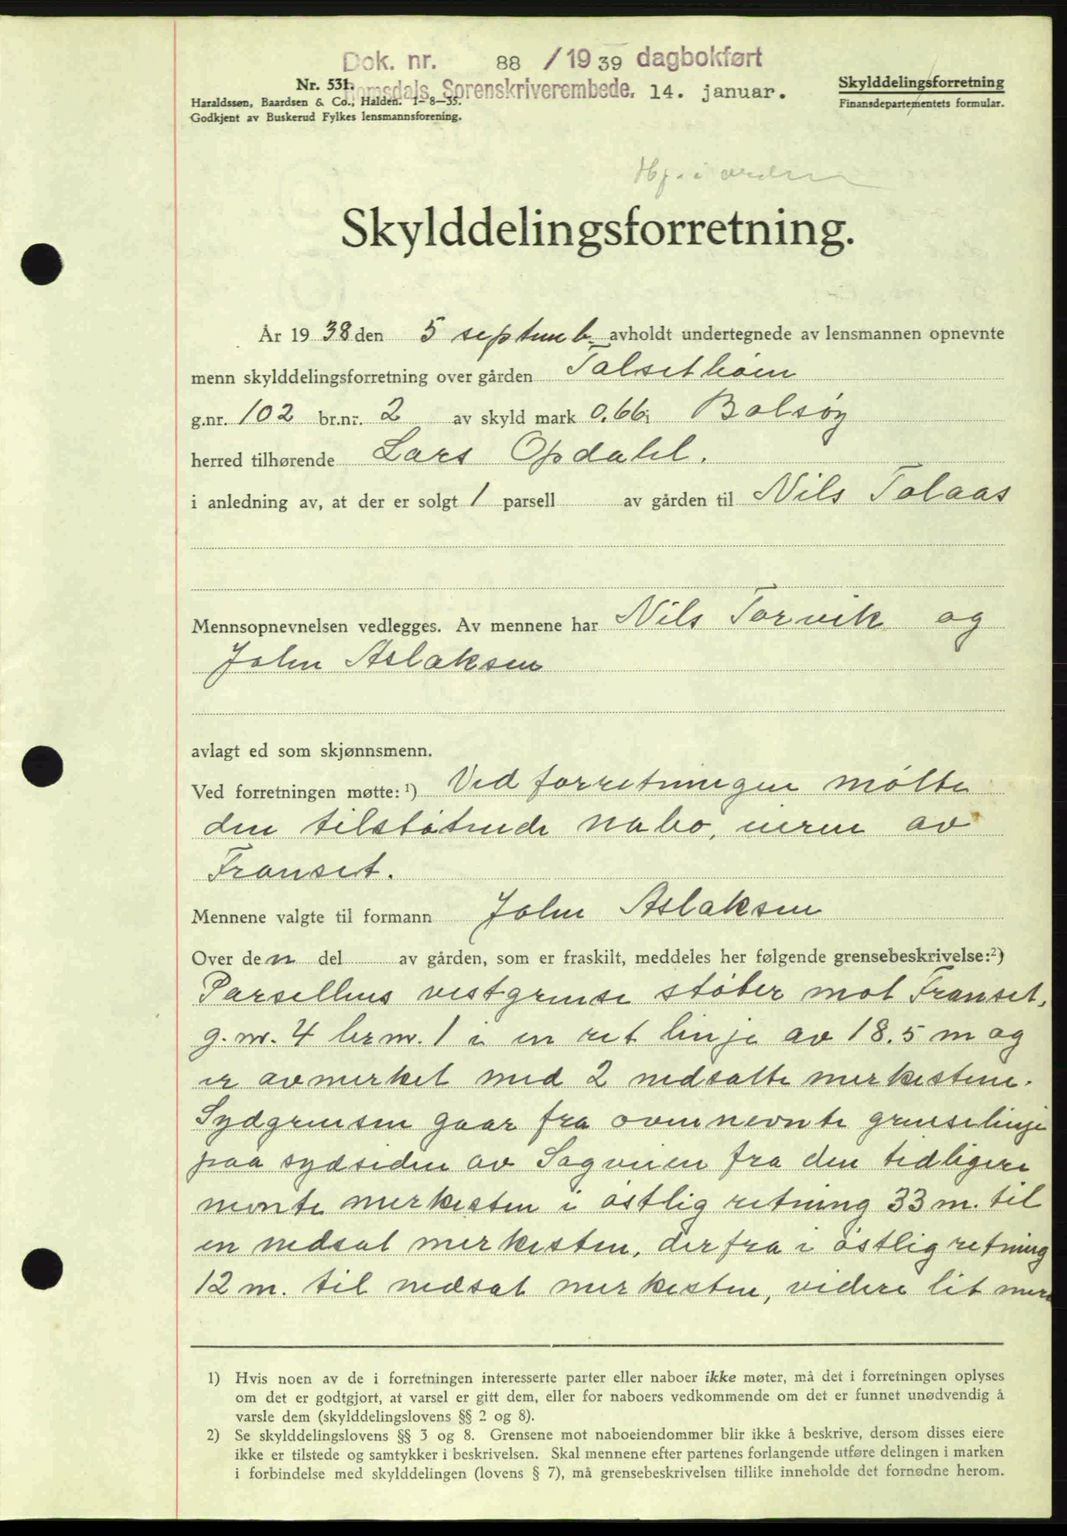 Dok. nr. 88 / 19 39 dagbokført
Romsdals Sorenskriverembede. 14. januar.
Nr. 531.
Haraldssøn, Baardsen & Co., Halden. 1—8—35.
Godkjent av Buskerud Fylkes lensmannsforening.
Skylddelingsforretning
Finansdepartementets formular.
Hj. i orden
Skylddelingsforretning.
År 1938 den 5 septemb. avholdt undertegnede av lensmannen opnevnte
menn skylddelingsforretning over gården Talsethøen
g.nr. 102 br.nr. 2 av skyld mark 0.66 i Bolsøy
herred tilhørende Lars Opdahl.
i anledning av, at der er solgt 1 parsell av gården til Nils Talaas
Mennsopnevnelsen vedlegges. Av mennene har Nils Torvik og
John Aslaksen
avlagt ed som skjønnsmenn.
Ved forretningen møtte: ¹) Ved forretningen møtte
den tilstøtende nabo, eieren av
Franset.
Mennene valgte til formann John Aslaksen
Over den del av gården, som er fraskilt, meddeles her følgende grensebeskrivelse:²)
Parsellens vestgrense støter mot Franset,
g. nr. 4 br nr. 1 i en ret linje av 18.5 m og
er avmerket med 2 nedsatte merkestene.
Sydgrensen gaar fra ovennevnte grenselinje
paa sydsiden av Sagveien fra den tidligere
nevnte merkesten i østlig retning 33 m. til
en nedsat merkesten, derfra i østlig retning
12 m. til nedsat merkesten, videre lit mere
1) Hvis noen av de i forretningen interesserte parter eller naboer ikke møter, må det i forretningen oplyses
om det er godtgjort, at varsel er gitt dem, eller for naboers vedkommende om det er funnet unødvendig å
varsle dem (skylddelingslovens §§ 2 og 8).
2) Se skylddelingslovens §§ 3 og 8. Grensene mot naboeiendommer blir ikke å beskrive, dersom disses eiere
ikke er tilstede og samtykker i beskrivelsen. Skal mennene efter partenes forlangende utføre delingen i marken
i forbindelse med skylddelingen (lovens § 7), må grensebeskrivelsen tillike inneholde det fornødne herom.